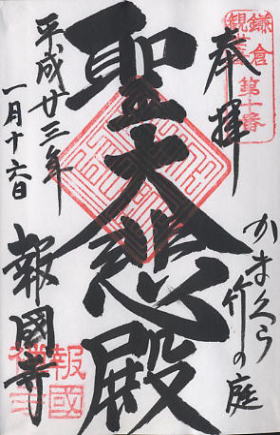 鎌倉
観世音
第十番
奉拝
かまくら
竹の庭
聖大悲殿
平成廿三年
一月十六日
報國寺
報國
禅寺